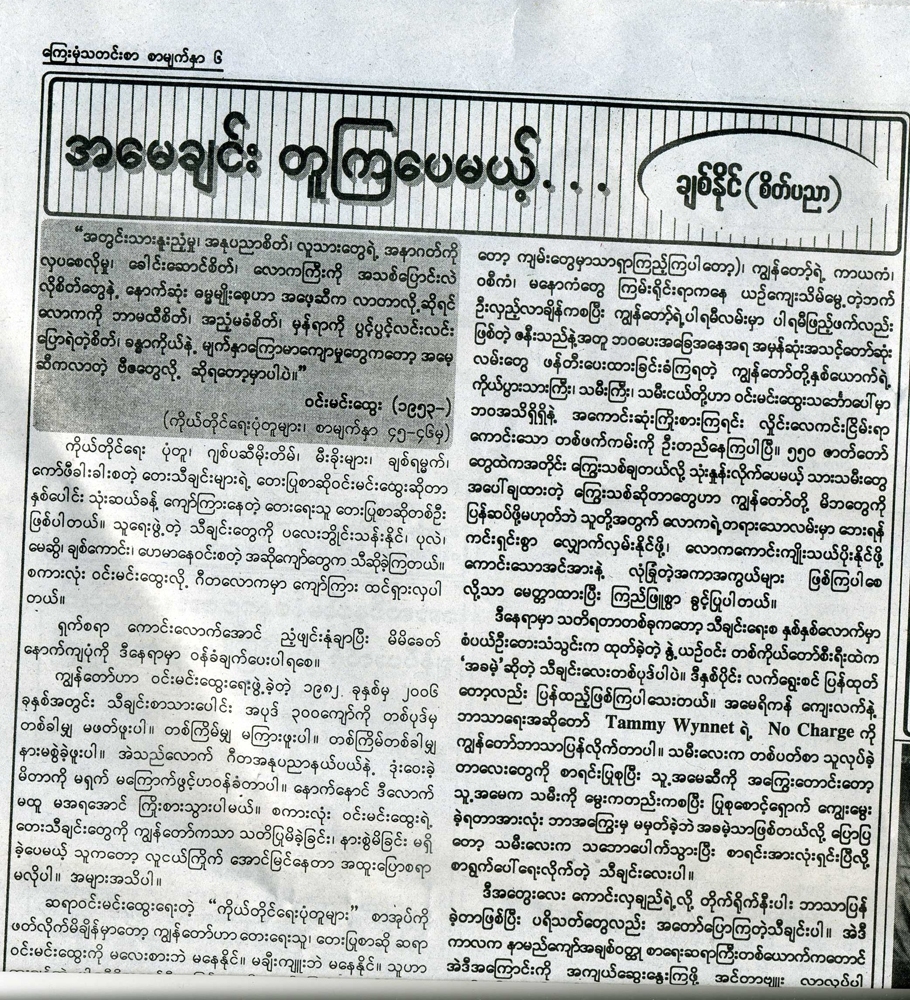 ကြေးမုံသတင်းစာ စာမျက်နှာ ၆
အမေချင်း တူကြပေမယ့်...
ချစ်နိုင်(စိတ်ပညာ)
“အတွင်းသားနူးညံ့မှု၊ အနုပညာစိတ်၊ လူသားတွေရဲ့ အနာဂတ်ကို
လှပစေလိုမှု၊ ခေါင်းဆောင်စိတ်၊ လောကကြီးကို အသစ်ပြောင်းလဲ
လိုစိတ်တွေနဲ့ နောက်ဆုံး ဓမ္မမျိုးစေ့ဟာ အဖေ့ဆီက လာတာလို့ ဆိုရင်
လောကကို ဘာမထီစိတ်၊ အညံ့မခံစိတ်၊ မှန်ရာကို ပွင့်ပွင့်လင်းလင်း
ပြောရဲတဲ့စိတ်၊ ခန္ဓာကိုယ်နဲ့ မျက်နှာကြောမာကျောမှုတွေကတော့ အမေ့
ဆီကလာတဲ့ ဗီဇတွေလို့ ဆိုရတော့မှာပါပဲ။”
ဝင်းမင်းထွေး (၁၉၅၃-)
(ကိုယ်တိုင်ရေးပုံတူများ၊ စာမျက်နှာ ၄၅-၄၆မှ)
ကိုယ်တိုင်ရေး ပုံတူ၊ ဂျစ်ပဆီမိုးတိမ်၊ မီးခိုးများ၊ ချစ်ရမ္မက်၊
ကော်ဖီခါးခါးစတဲ့ တေးသီချင်းများရဲ့ တေးပြုစာဆိုဝင်းမင်းထွေးဆိုတာ
နှစ်ပေါင်း သုံးဆယ်ခန့် ကျော်ကြားနေတဲ့ တေးရေးသူ တေးပြုစာဆိုတစ်ဦး
ဖြစ်ပါတယ်။ သူရေးဖွဲ့တဲ့ သီချင်းတွေကို ပလေးဘွိုင်းသန်းနိုင်၊ ပုလဲ၊
မေဆွိ၊ ချစ်ကောင်း၊ ဟေမာနေဝင်းစတဲ့ အဆိုကျော်တွေက သီဆိုခဲ့ကြတယ်။
စကားလုံး ဝင်းမင်းထွေးလို့ ဂီတလောကမှာ ကျော်ကြား ထင်ရှားလှပါ
တယ်။
ရှက်စရာ ကောင်းလောက်အောင် ညံ့ဖျင်းနုံချာပြီး မိမိခေတ်
နောက်ကျပုံကို ဒီနေရာမှာ ဝန်ခံချက်ပေးပါရစေ။
ကျွန်တော်ဟာ ဝင်းမင်းထွေးရေးဖွဲ့ခဲ့တဲ့ ၁၉၈၂ ခုနှစ်မှ ၂၀၀၆
ခုနှစ်အတွင်း သီချင်းစာသားပေါင်း အပုဒ် ၃၀၀ကျော်ကို တစ်ပုဒ်မှ
တစ်ခါမျှ မဖတ်ဖူးပါ။ တစ်ကြိမ်မျှ မကြားဖူးပါ။ တစ်ကြိမ်တစ်ခါမျှ
နားမစွဲခဲ့ဖူးပါ။ အဲသည်လောက် ဂီတအနုပညာနယ်ပယ်နဲ့ ဒုံးဝေးခဲ့
မိတာကို မရှက် မကြောက်ဖွင့်ဟဝန်ခံတာပါ။ နောက်နောင် ဒီလောက်
မထူ မအရအောင် ကြိုးစားသွားပါမယ်။ စကားလုံး ဝင်းမင်းထွေးရဲ့
တေးသီချင်းတွေကို ကျွန်တော်ကသာ သတိပြုမိခဲ့ခြင်း၊ နားစွဲမိခြင်း မရှိ
ခဲ့ပေမယ့် သူကတော့ လူငယ်ကြိုက် အောင်မြင်နေတာ အထူးပြောစရာ
မလိုပါ။ အများအသိပါ။
ဆရာဝင်းမင်းထွေးရေးတဲ့ “ကိုယ်တိုင်ရေးပုံတူများ” စာအုပ်ကို
ဖတ်လိုက်မိချိန်မှာတော့ ကျွန်တော်ဟာ တေးရေးသူ၊ တေးပြုစာဆို ဆရာ
ဝင်းမင်းထွေးကို မလေးစားဘဲ မနေနိုင်။ မချီးကျူးဘဲ မနေနိုင်။ သူဟာ
တော့ ကျမ်းတွေမှာသာရှာကြည့်ကြပါတော့)၊ ကျွန်တော့်ရဲ့ ကာယကံ၊
ဝစီကံ၊ မနောကံတွေ ကြမ်းရိုင်းရာကနေ ယဉ်ကျေးသိမ်မွေ့တဲ့ဘက်
ဦးလှည့်လာချိန်ကစပြီး ကျွန်တော့်ရဲ့ပါရမီလမ်းမှာ ပါရမီဖြည့်ဖက်လည်း
ဖြစ်တဲ့ ဇနီးသည်နဲ့အတူ ဘဝပေးအခြေအနေအရ အမှန်ဆုံးအသင့်တော်ဆုံး
လမ်းတွေ ဖန်တီးပေးထားခြင်းခံကြရတဲ့ ကျွန်တော်တို့နှစ်ယောက်ရဲ့
ကိုယ်ပွားသားကြီး၊ သမီးကြီး၊ သမီးငယ်တို့ဟာ ဝင်းမင်းထွေးသင်္ဘောပေါ်မှာ
ဘဝအသိရှိရှိနဲ့ အကောင်းဆုံးကြိုးစားကြရင်း လှိုင်းလေကင်းငြိမ်းရာ
ကောင်းသော တစ်ဖက်ကမ်းကို ဦးတည်နေကြပါပြီ။ ၅၅၀ ဇာတ်တော်
တွေထဲကအတိုင်း ကြွေးသစ်ချတယ်လို့ သုံးနှုန်းလိုက်ပေမယ့် သားသမီးတွေ
အပေါ်ချထားတဲ့ ကြွေးသစ်ဆိုတာတွေဟာ ကျွန်တော်တို့ မိဘတွေကို
ပြန်ဆပ်ဖို့မဟုတ်ဘဲ သူတို့အတွက် လောကရဲ့တရားသောလမ်းမှာ ဘေးရန်
ကင်းရှင်းစွာ လျှောက်လှမ်းနိုင်ဖို့၊ လောကကောင်းကျိုးသယ်ပိုးနိုင်ဖို့
ကောင်းသောအင်အားနဲ့ လုံခြုံတဲ့အကာအကွယ်များ ဖြစ်ကြပါစေ
လို့သာ မေတ္တာထားပြီး ကြည်ဖြူစွာ ခွင့်ပြုပါတယ်။
ဒီနေရာမှာ သတိရတာတစ်ခုကတော့ သီချင်းရေးစ နှစ်နှစ်လောက်မှာ
စံပယ်ဦးတေးသံသွင်းက ထုတ်ခဲ့တဲ့ နွဲ့ယဉ်ဝင်း တစ်ကိုယ်တော်စီးရီးထဲက
‘အခမဲ့’ဆိုတဲ့ သီချင်းလေးတစ်ပုဒ်ပါပဲ။ ဒီနှစ်ပိုင်း လက်ရွေးစင် ပြန်ထုတ်
တော့လည်း ပြန်ထည့်ဖြစ်ကြပါသေးတယ်။ အမေရိကန် ကျေးလက်နဲ့
ဘာသာရေးအဆိုတော် Tammy Wynnet ရဲ့ No Charge ကို
ကျွန်တော်ဘာသာပြန်လိုက်တာပါ။ သမီးလေးက တစ်ပတ်စာ သူလုပ်ခဲ့
တာလေးတွေကို စာရင်းပြုစုပြီး သူ့အမေဆီကို အကြွေးတောင်းတော့
သူ့အမေက သမီးကို မွေးကတည်းကစပြီး ပြုစုစောင့်ရှောက် ကျွေးမွေး
ခဲ့ရတာအားလုံး ဘာအကြွေးမှ မမှတ်ခဲ့ဘဲ အခမဲ့သာဖြစ်တယ်လို့ ပြောပြ
တော့ သမီးလေးက သဘောပေါက်သွားပြီး စာရင်းအားလုံးရှင်းပြီလို့
စာရွက်ပေါ်ရေးလိုက်တဲ့ သီချင်းလေးပါ။
ဒီအတွေးလေး ကောင်းလှချည်ရဲ့လို့ တိုက်ရိုက်နီးပါး ဘာသာပြန်
ခဲ့တာဖြစ်ပြီး ပရိသတ်တွေလည်း အတော်ပြောကြတဲ့သီချင်းပါ။ အဲဒီ
ကာလက နာမည်ကျော်အချစ်ဝတ္ထု စာရေးဆရာကြီးတစ်ယောက်ကတောင်
အဲဒီအကြောင်းကို အကျယ်ဆွေးနွေးကြဖို့ အင်တာဗျူး လာလုပ်ပါ